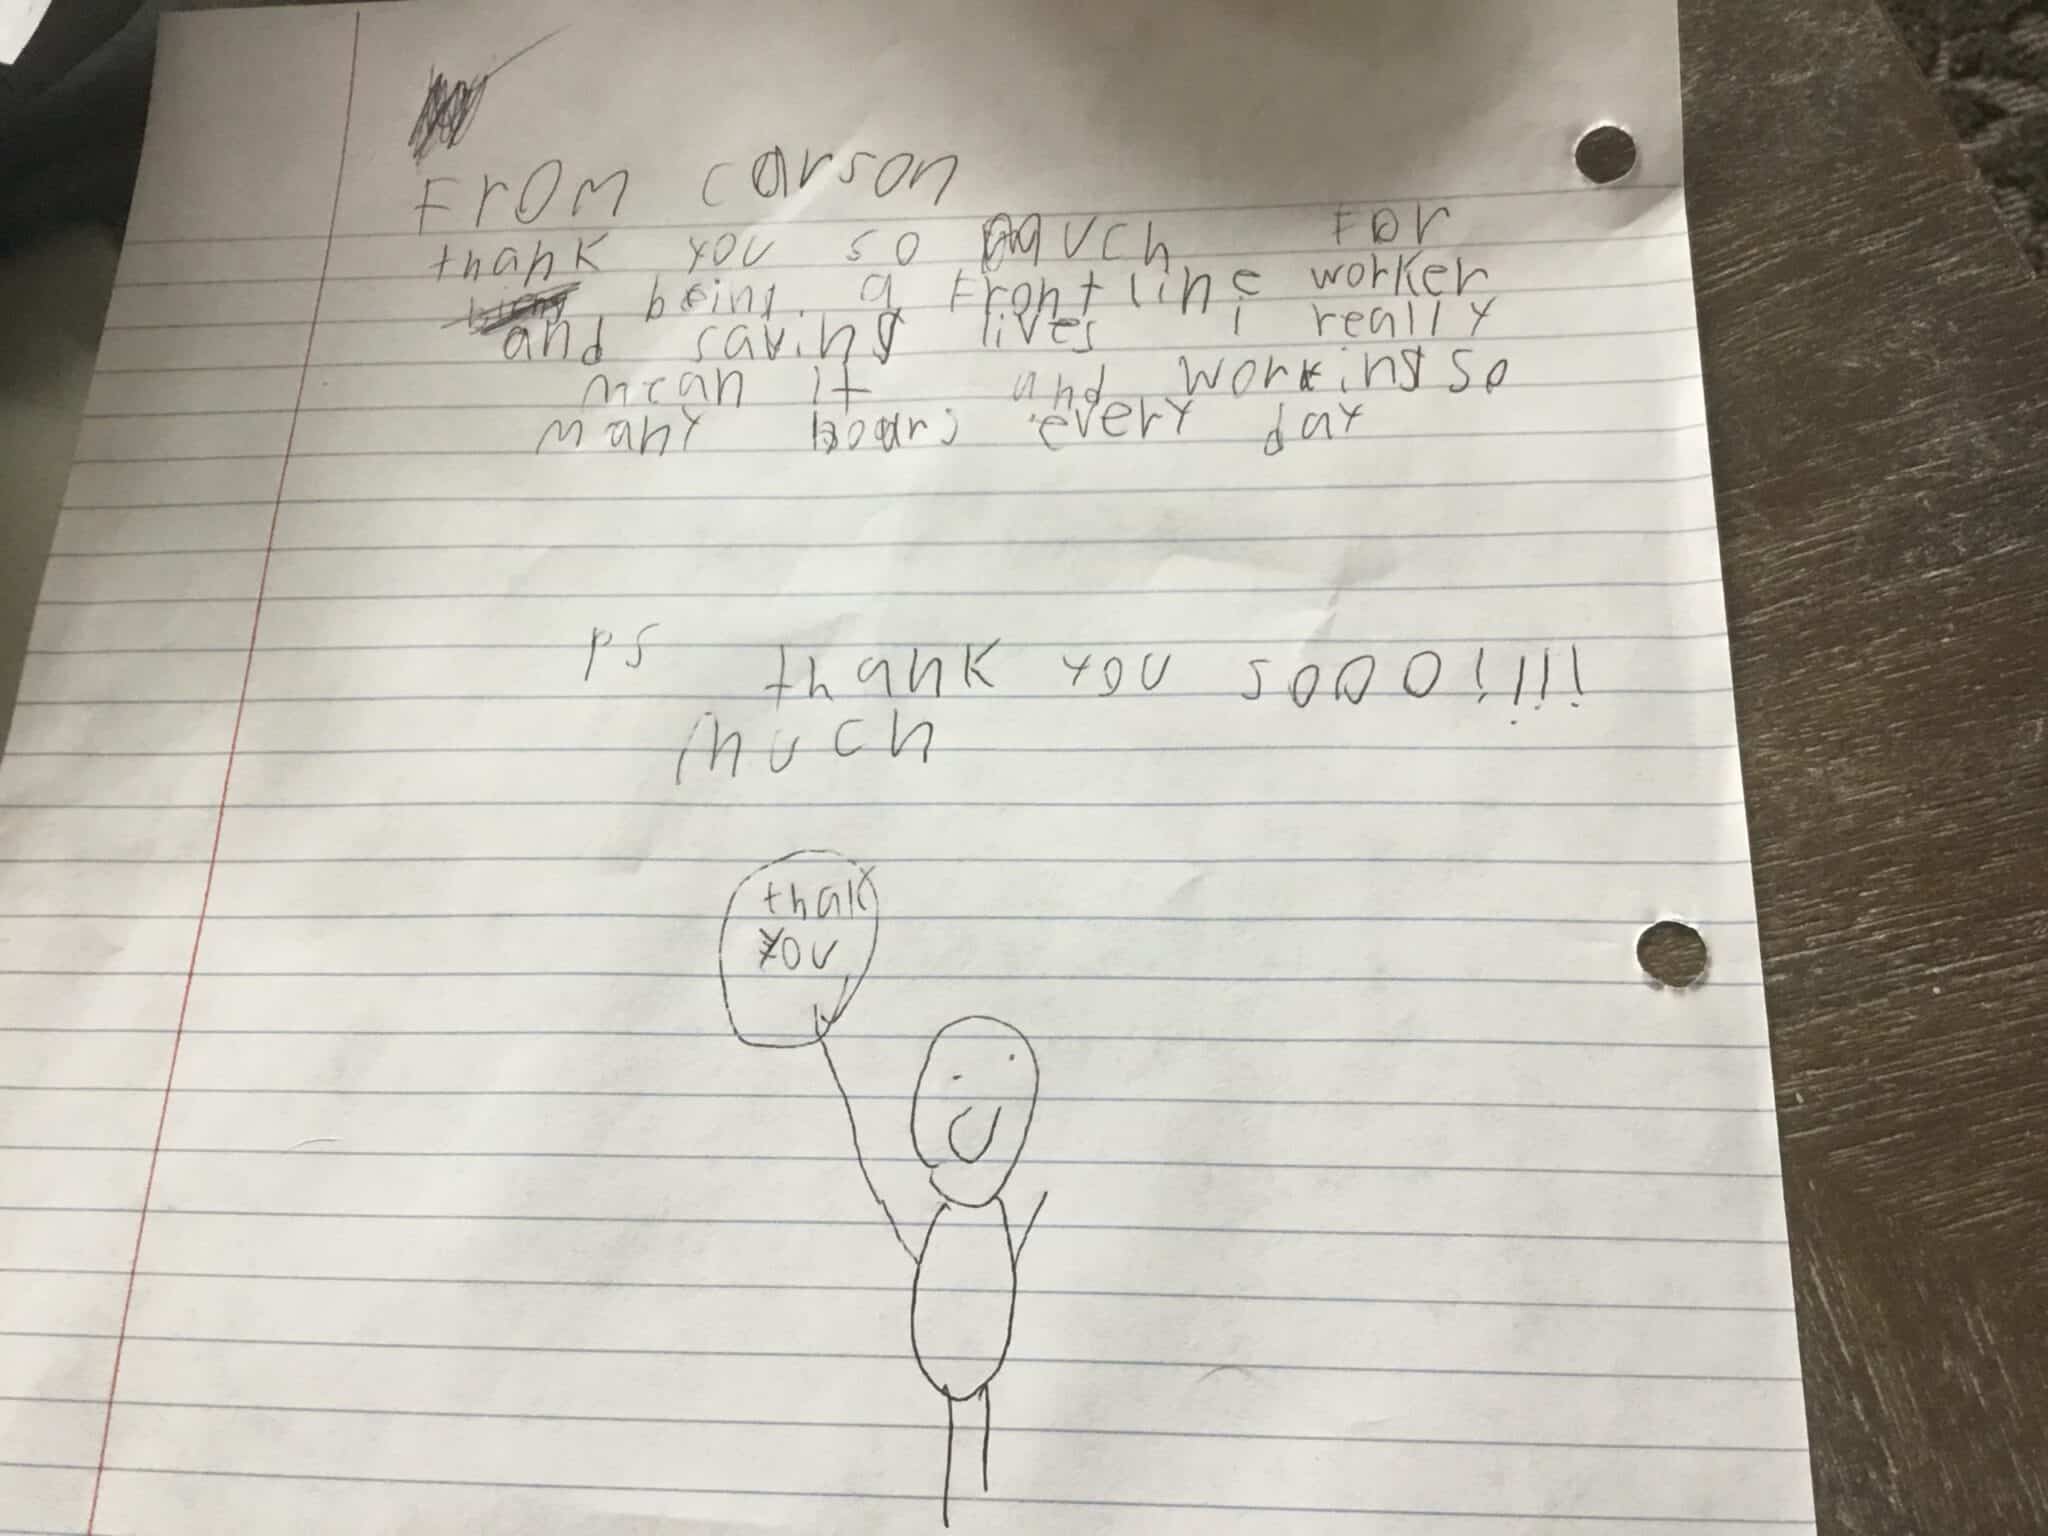 From carson
thank you so much for
being a frontline worker
and saving lives i really
mean it and working so
many hours every day
ps thank you sooo!!!!
much
thak
you